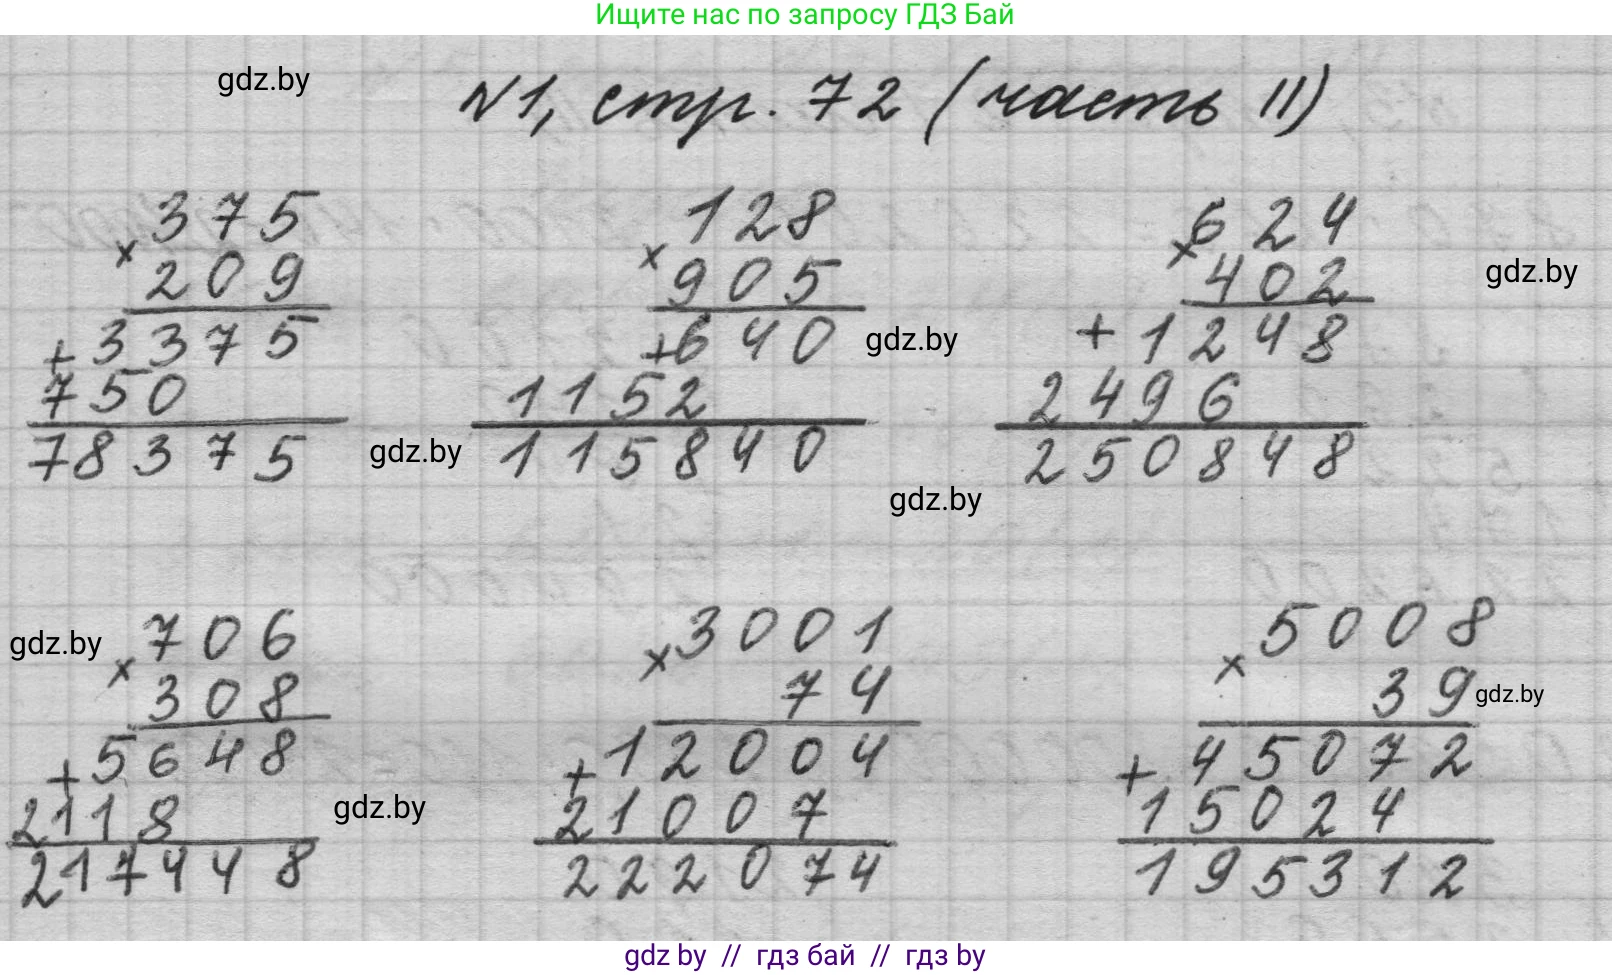 Ищите нас по запросу ГДЗ Бай
gdz.by
№1, стр. 72 (часть II)
375
× 209
+ 3375
750
78375
gdz.by
128
× 905
+ 640
1152
115840
gdz.by
gdz.by
624
× 402
+ 1248
2496
250848
gdz.by
gdz.by
706
× 308
+ 5648
2118
217448
gdz.by
3001
× 74
+ 12004
21007
222074
5008
× 39
+ 45072
15024
195312
gdz.by
gdz by // гдз бай // гдз by